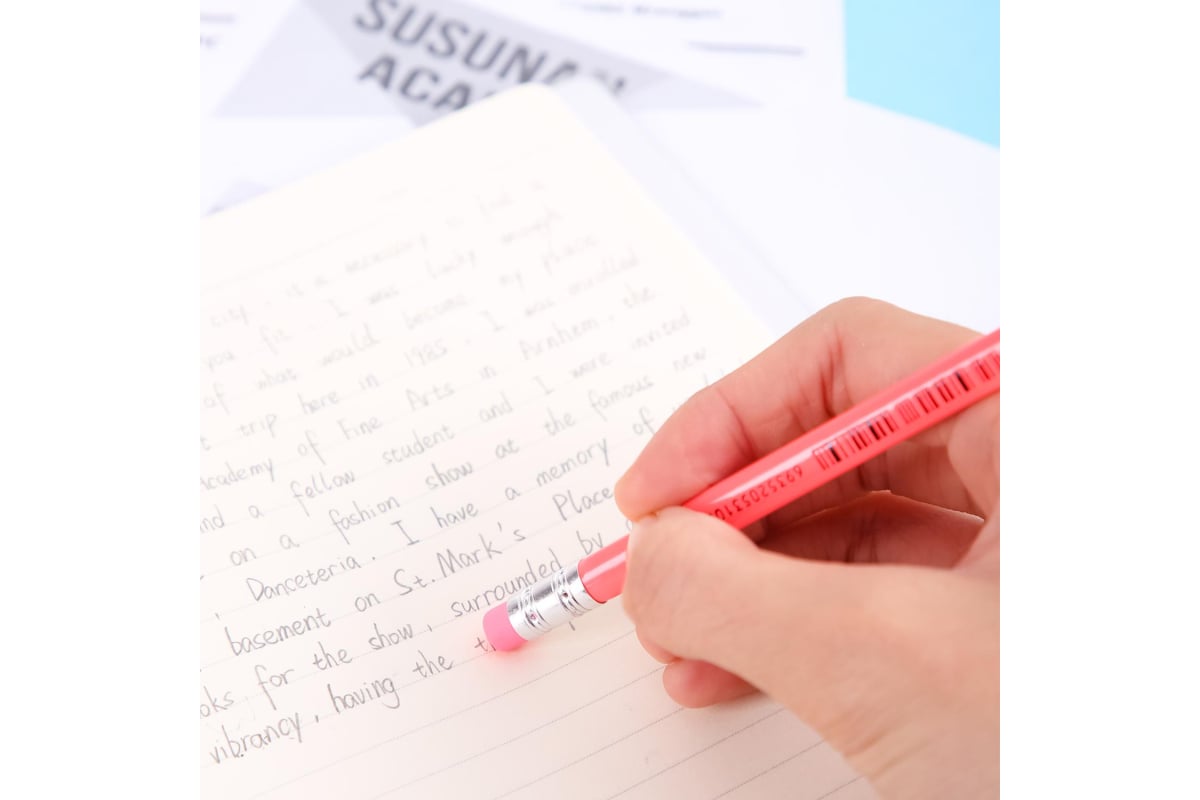 SUSUNA
ACA
city. it a necessary to find a
you fit. I was lucky enough
of what would become my phase
t trip here in 1985. I was enrolled
Academy of Fine Arts in Arnhem. the
nd a fellow student and I were invited
on a fashion show at the famous new
, Danceteria. I have a memory of
basement on St. Mark's Place
oks for the show, surrounded by
vibrancy, having the t
6935205310